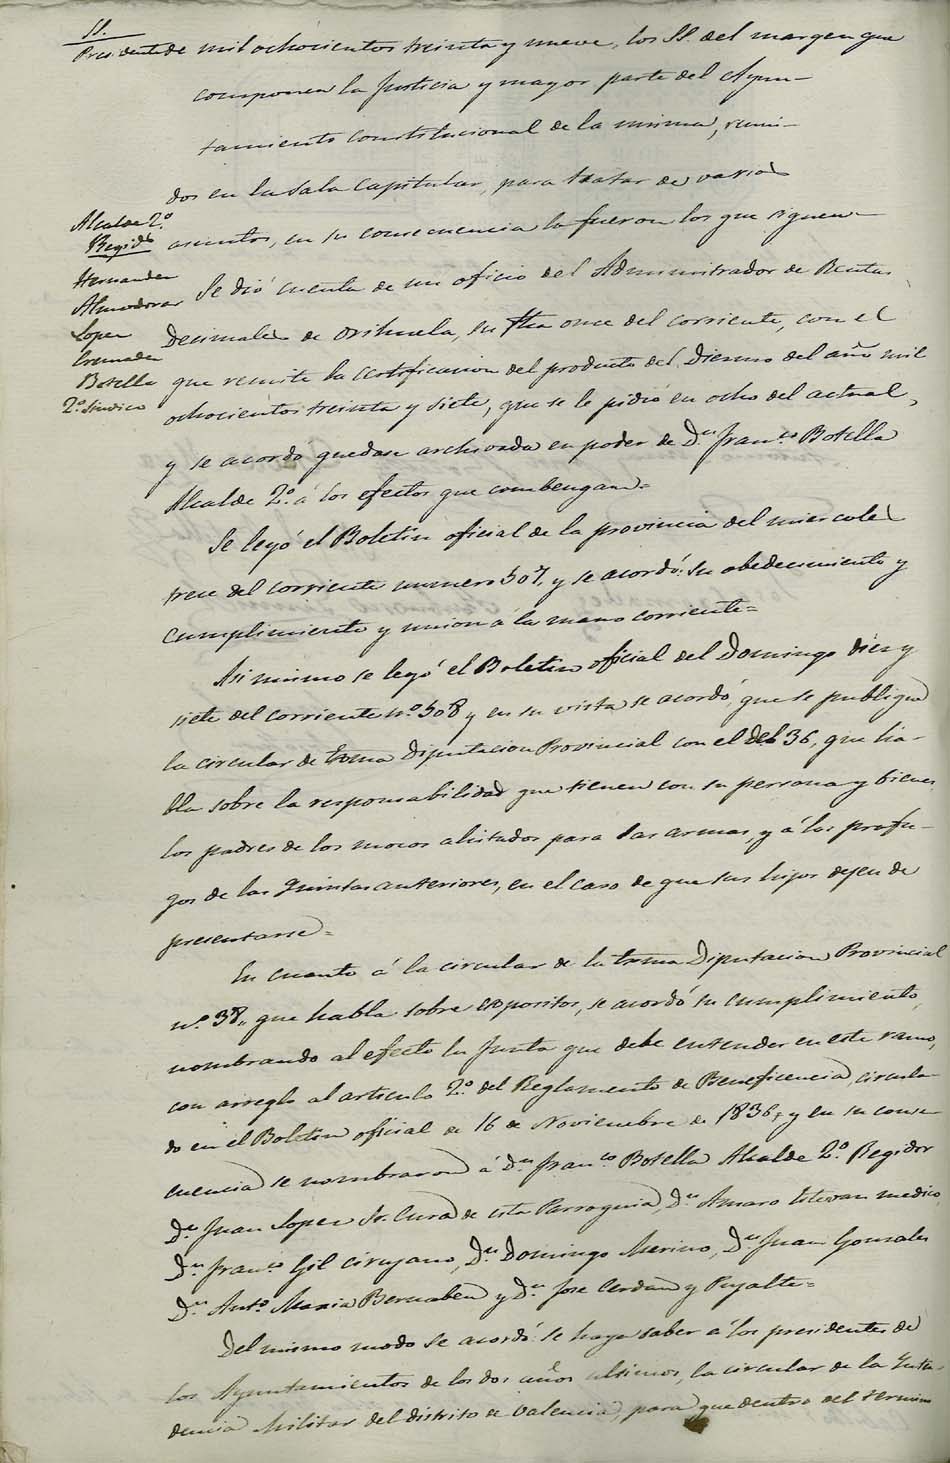 SS.
Presidente de mil ochocientos treinta y nueve, los SS. del margen que
componen la Justicia y mayor parte del Ayun-
tamiento constitucional de la misma, reuni-
dos en la Sala Capitular, para tratar de varios
Alcalde 2.º
Regid.s asuntos, en su consecuencia lo fueron los que siguen-
Hernandez
Almodovar Se dió cuenta de un oficio del Administrador de Rentas
Lopez Decimales de Orihuela, su fha once del corriente, con el
Cremades
Botella que remite la certificacion del producto del Diezmo del año mil
2.º Sindico ochocientos treinta y siete, que se le pidió en ocho del actual,
y se acordó quedase archivada en poder de D.n Fran.co Botella
Alcalde 2.º á los efectos que combengan=
Se leyó el Boletin oficial de la provincia del miercoles
trece del corriente numero 507, y se acordó: su obedecimiento y
cumplimiento y union á la mano corriente=
Asi mismo se leyó el Boletin oficial del Domingo diez y
siete del corriente n.º 508 y en su vista se acordó que se publique
la circular de Exma Diputacion Provincial con el del 36, que ha-
bla sobre la responsabilidad que tienen con su persona y bienes
los padres de los mozos alistados para las armas, y á los profu-
gos de las Quintas anteriores, en el caso de que sus hijos dejen de
presentarse=
En cuanto á la circular de la Exma Diputacion Provincial
n.º 38,, que habla sobre espositos, se acordó su cumplimiento,
nombrando al efecto la Junta que debe entender en este ramo,
con arreglo al articulo 2.º del Reglamento de Beneficencia, circula-
do en el Boletin oficial de 16 de Noviembre de 1836, y en su conse-
cuencia se nombraron á D.n Fran.co Botella Alcalde 2.º Regidor
D.n Juan Lopez Sr. Cura de esta Parroquia D.n Amaro Estevan medico,
D.n Fran.co Gil Cirujano, D.n Domingo Merino, D.n Juan Gonzales
D.n Ant.º Maria Bernabeu y D.n Jose Cerdan y Pujalte=
Del mismo modo se acordó se haga saber á los presidentes de
los Ayuntamientos de los dos años ultimos, la circular de la Inten-
dencia Militar del distrito de Valencia, para que dentro del termino